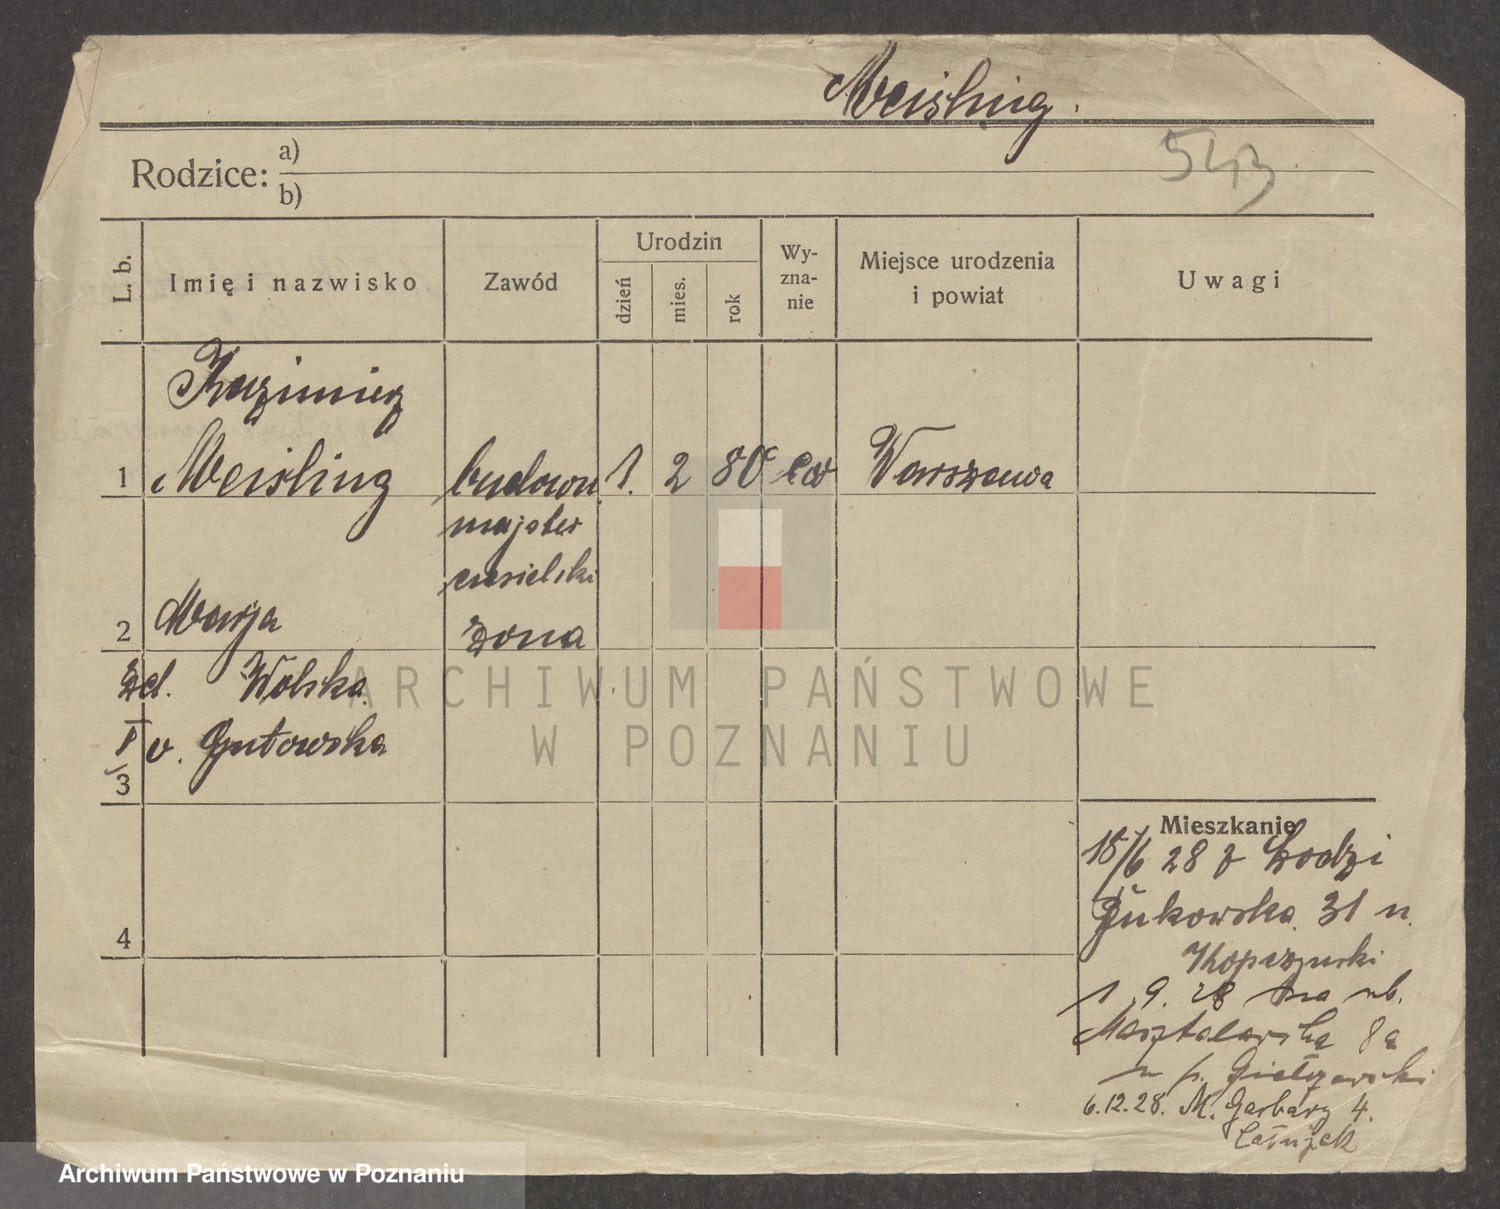 Meisling.
543
Rodzice: a)
b)
L. b.
Imię i nazwisko
Zawód
Urodzin
dzień
mies.
rok
Wy-
zna-
nie
Miejsce urodzenia
i powiat
Uwagi
Kazimierz
1 Meisling budown. 1. 2 80 ew Warszawa
majster
ciesielski
2 Marja żona
zd. Wolska
I v. Gutowska
3
4
Mieszkanie
15/6 28 z Łodzi
Żukowska 31 u.
Kopczynski
1.9.28 na ub.
Masztalarska 8a
u p. Giełzewski
6.12.28. M. Garbary 4.
ARCHIWUM PAŃSTWOWE
W POZNANIU
Archiwum Państwowe w Poznaniu